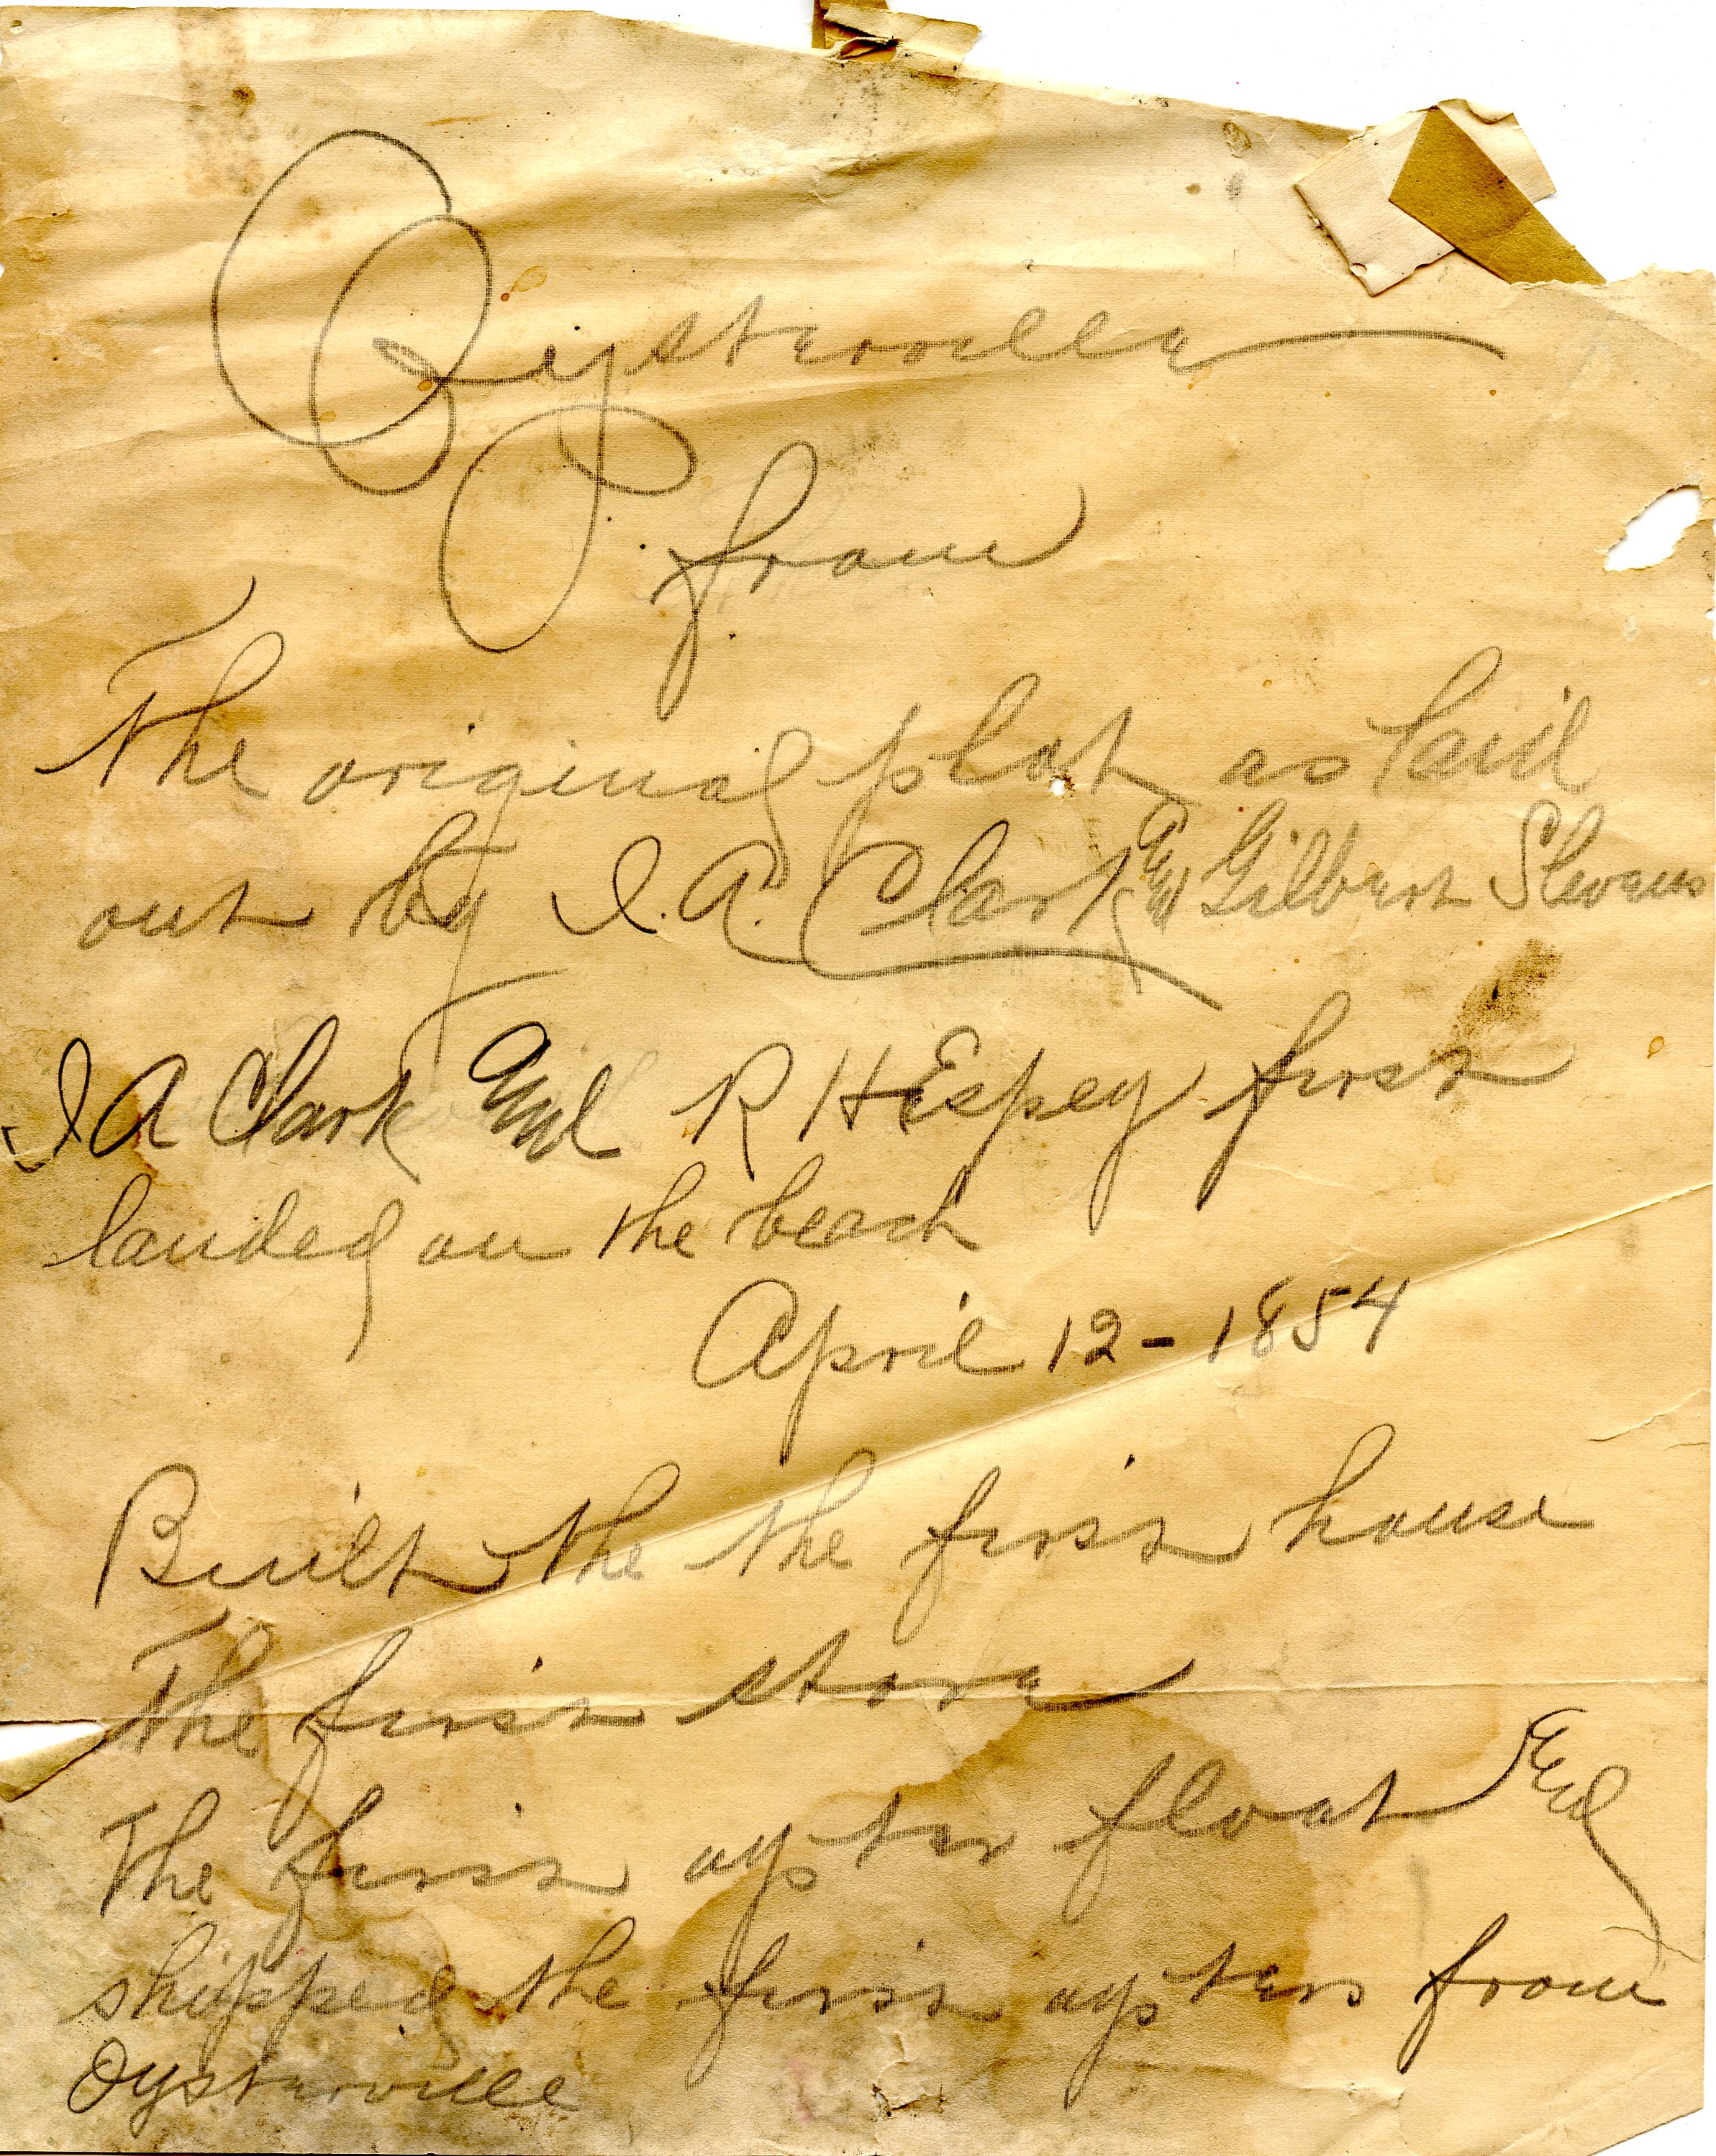 Oysterville
from
The original plat as laid
out by I. A. Clark and Gilbert Stevens
I A Clark And R H Espey first
landed on the beach
April 12 - 1854
Built the the first house
The first store
The first oyster float And
shipped the first oysters from
Oysterville